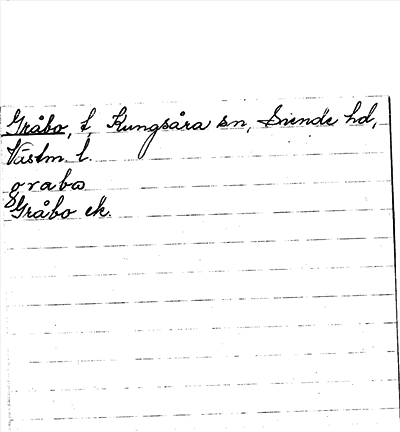 Gråbo, t, Kungsåra sn, Siende hd,
Västm. l.
grabo
Gråbo ek.